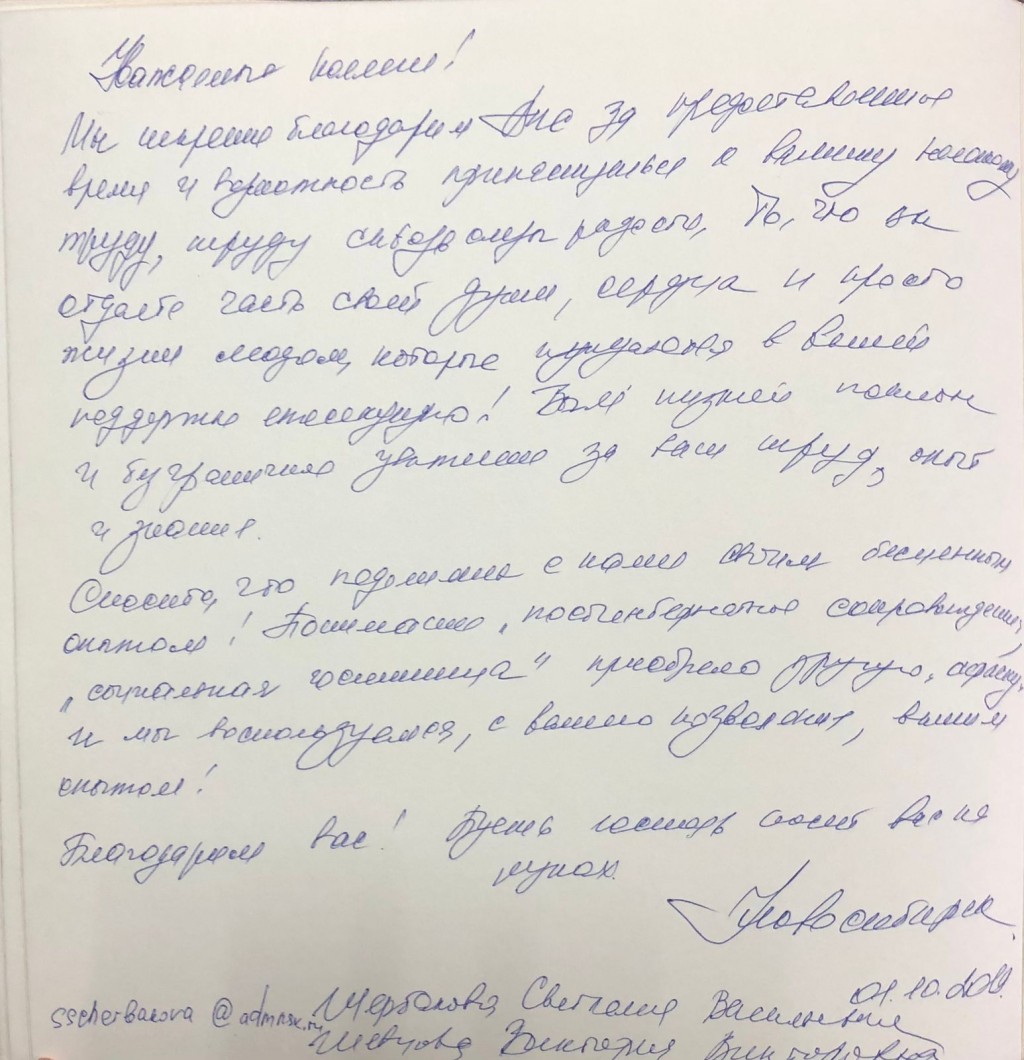 Уважаемые коллеги!
Мы искренне благодарим Вас за предоставленное
время и возможность прикоснуться к вашему
труду, труду сквозь слезы радости. То, что вы
отдаете часть своей души, сердца и просто
жизни людям, которые нуждаются в вашей
поддержке ежесекундно! Вам низкий поклон
и безграничное уважение за ваш труд, опыт
и знания.
Спасибо, что поделились с нами своим бесценным
опытом! Понимание „постинтернатное сопровождение“,
„социальная гостиница“ приобрело другую „окраску“
и мы воспользуемся, с вашего позволения, вашим
опытом!
Благодарим вас! Пусть господь носит вас на
руках.
Новосибирск.
01.10.
Щербакова Светлана Васильевна
sscherbakova@admnsk.ru
Шевцова Виктория Викторовна